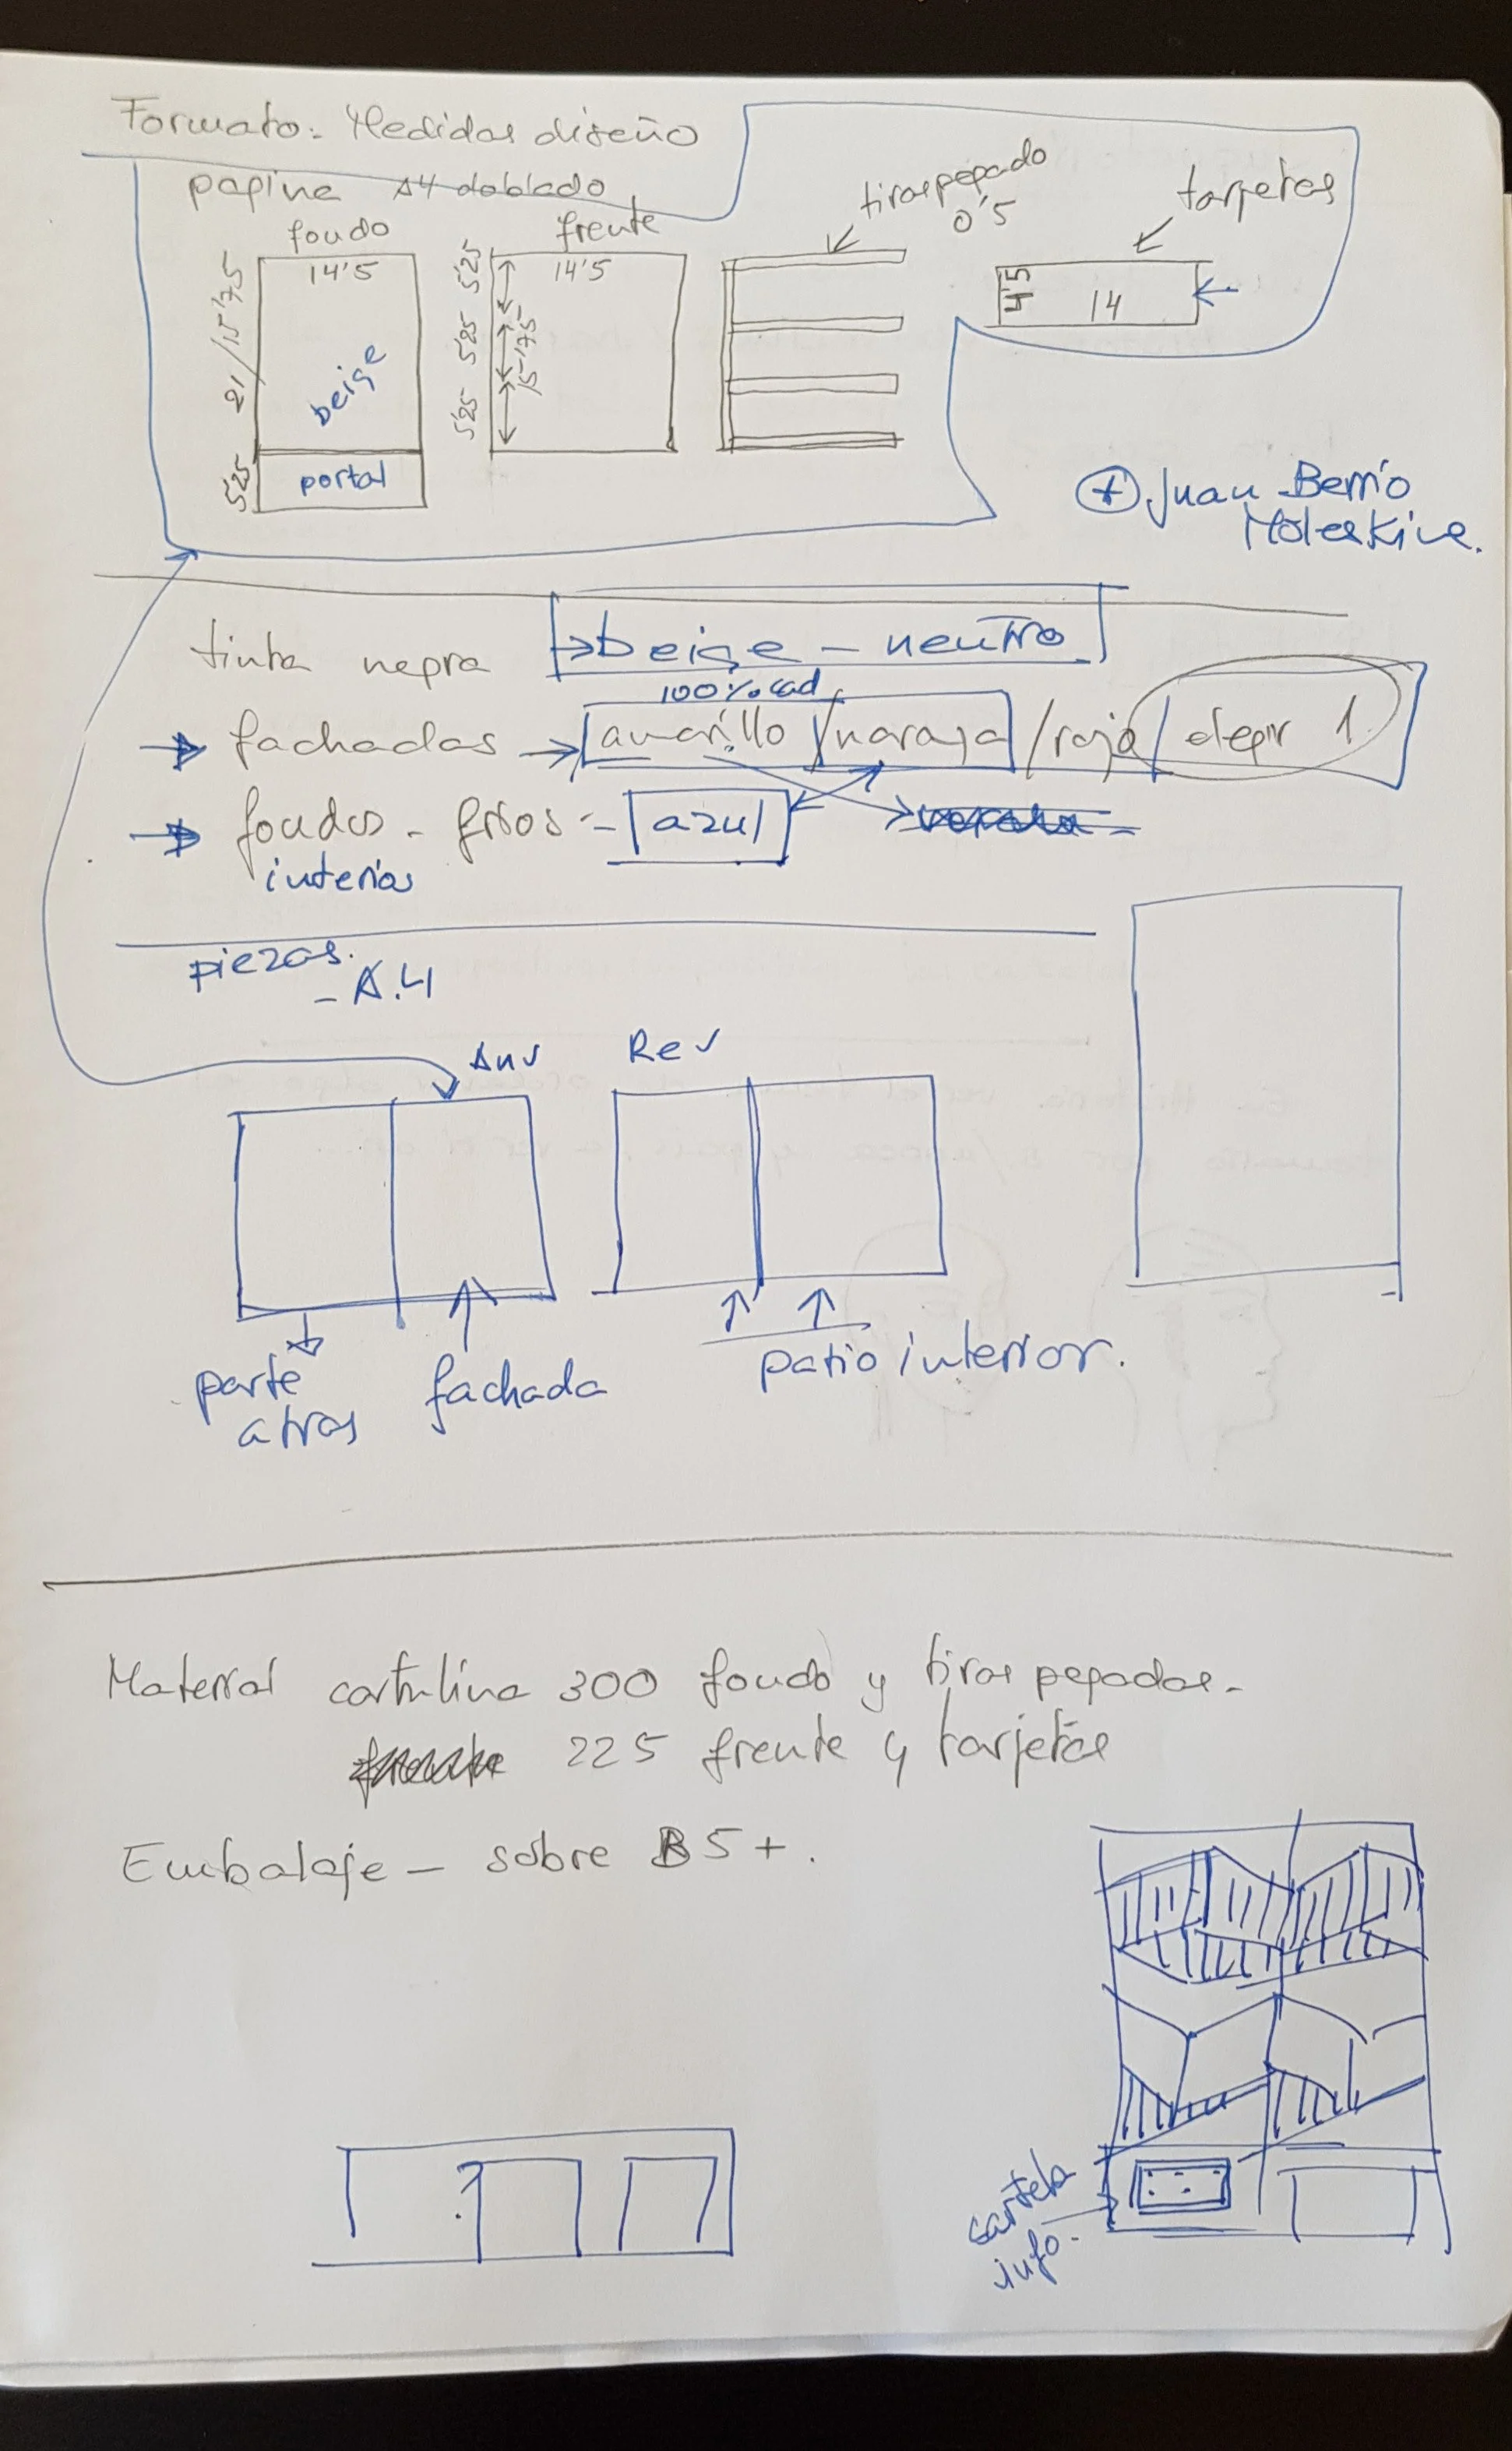 Formato: Medidas diseño
pagina A4 doblado
fondo
frente
tiras pegado
0'5
tarjetas
14'5
21/15'75
beige
5'25
portal
5'25
5'25
5'25
14'5
15'75
4'5
14
+ Juan Berrio
Moleskine.
tinta negra → beige - neutro
100% cad
→ fachadas → amarillo / naraja / rojo / elegir 1
→ fondos - grises - azul →
interios
piezas.
- A.4
Anv
Rev
parte
atras
fachada
patio interior.
Material cartulina 300 fondo y tiras pegados.
225 frente y tarjetas
Embalaje - sobre B5+.
?
cartela
info.